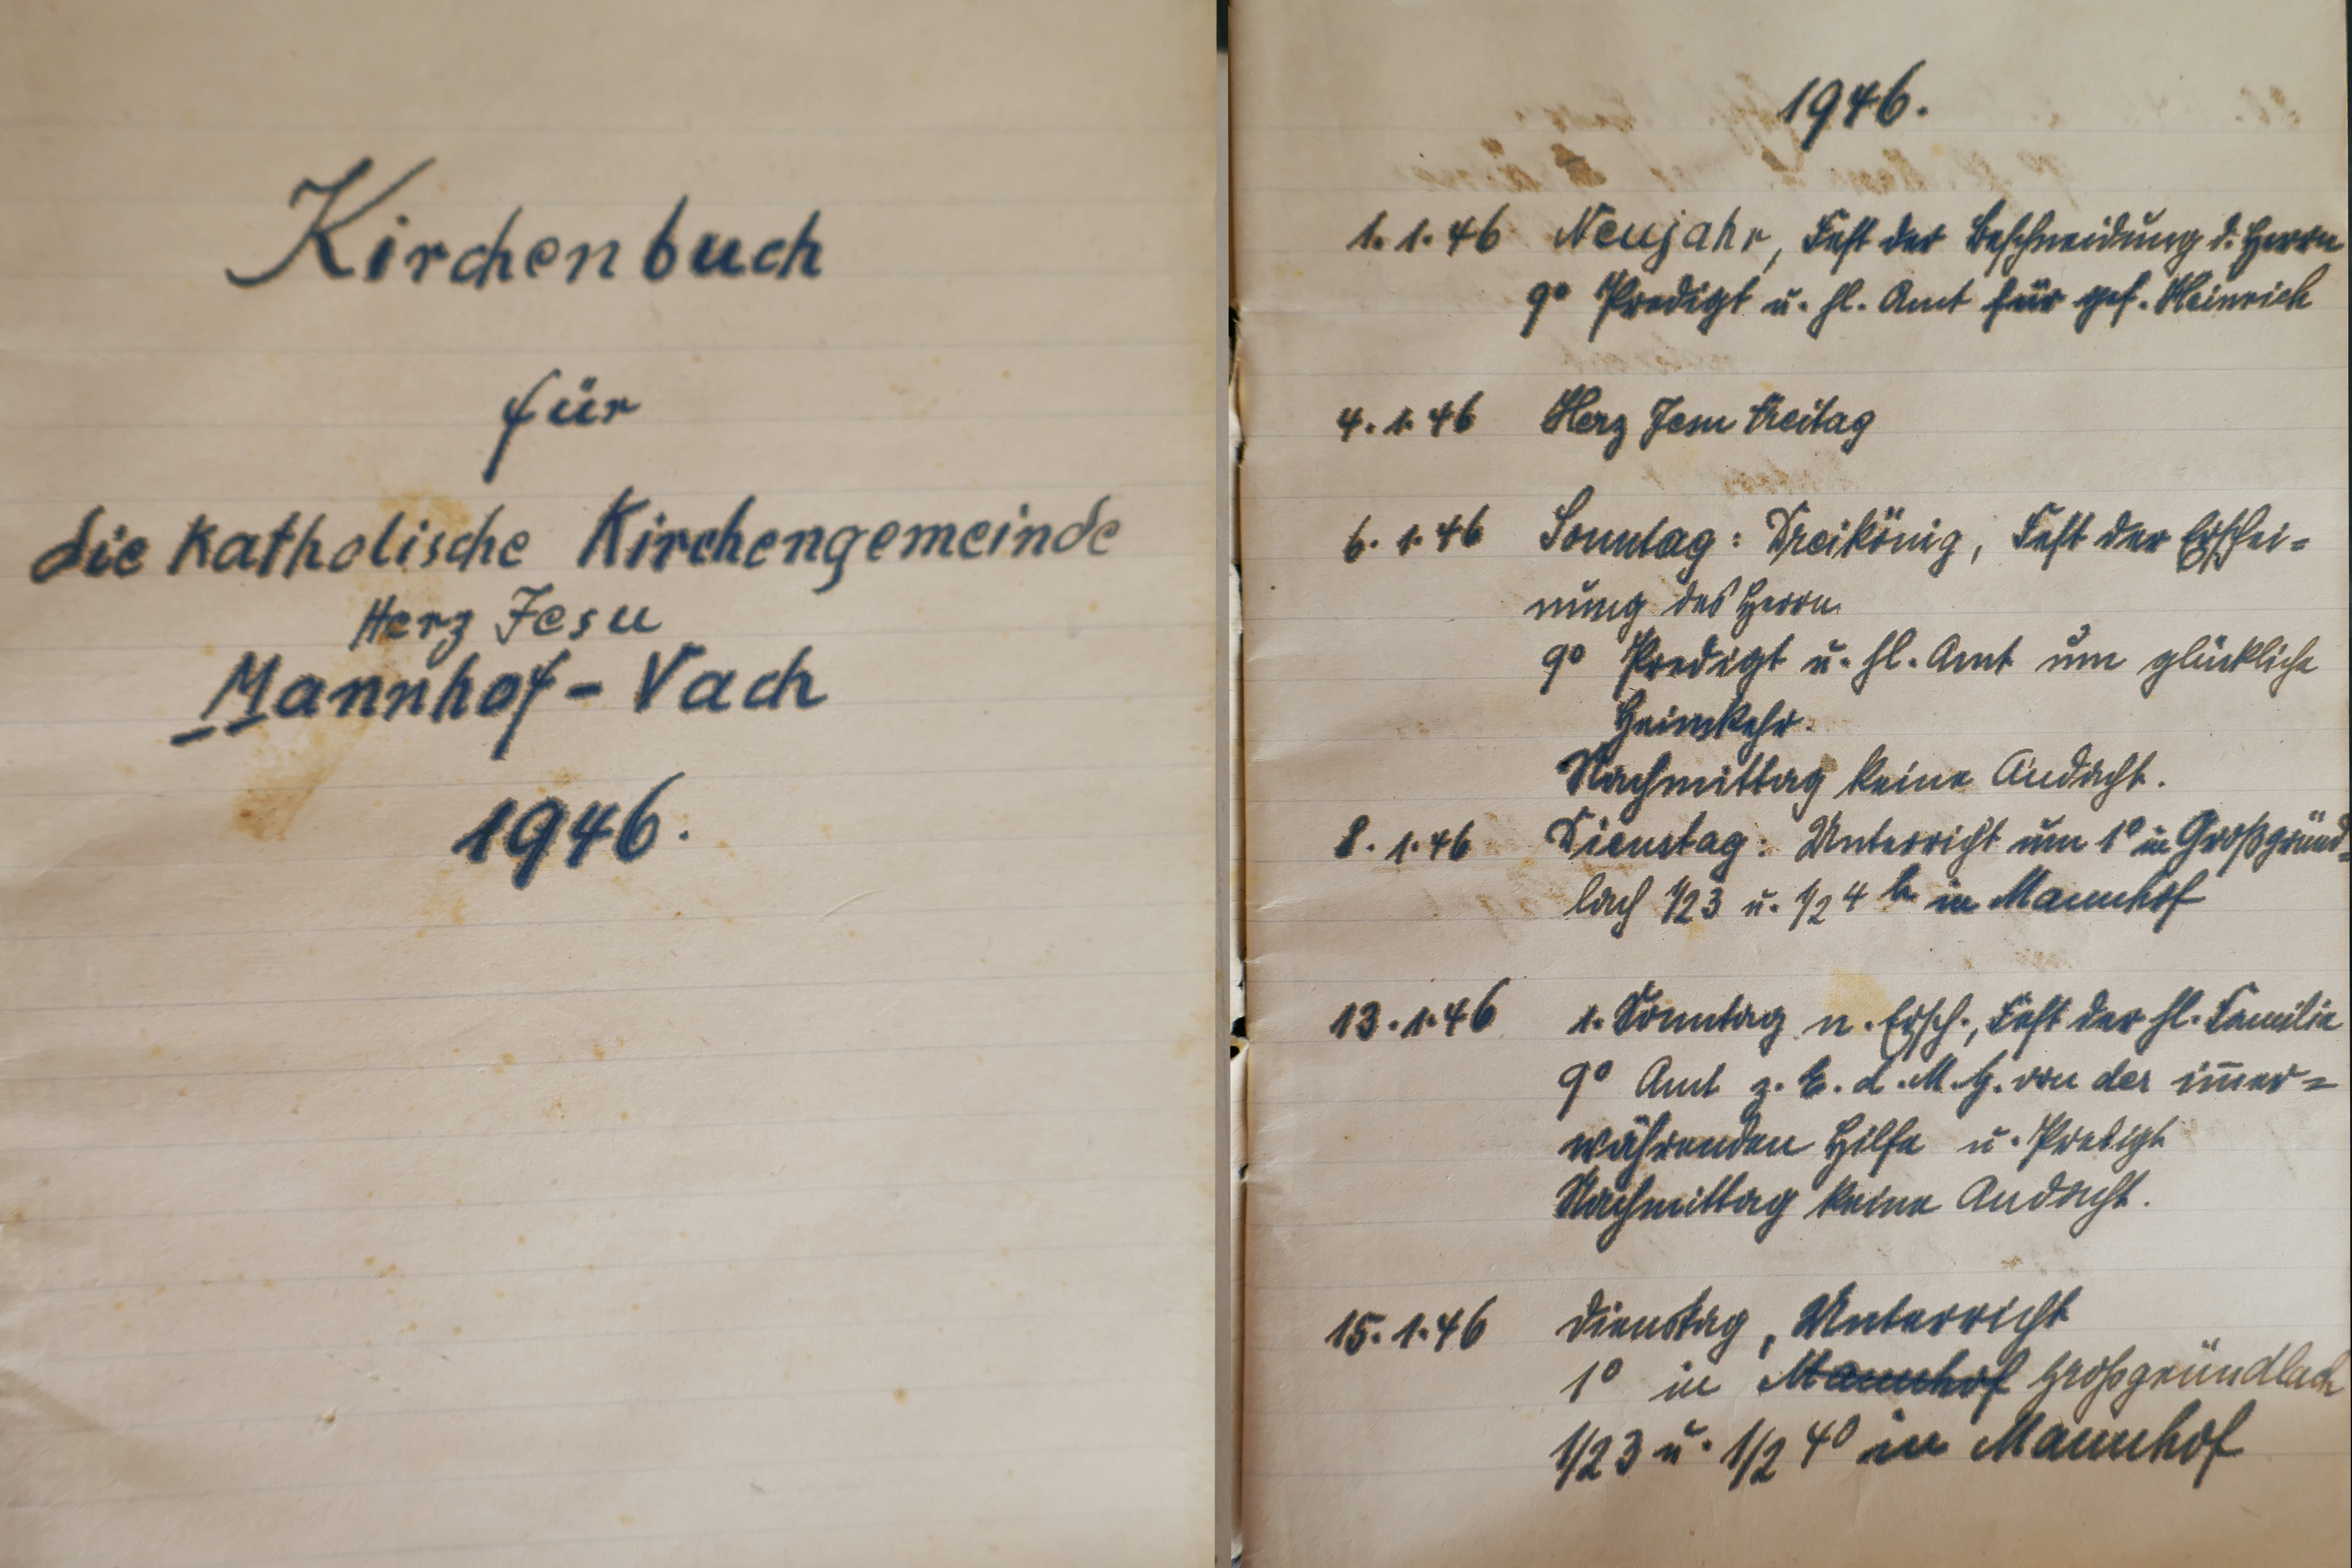 Kirchenbuch
für
die katholische Kirchengemeinde
Herz Jesu
Mannhof - Vach
1946.
1946.
1. 1. 46 Neujahr, Fest der Beschneidung d. Herrn
9⁰ Predigt u. hl. Amt für gef. Heinrich
4. 1. 46 Herz Jesu Freitag
6. 1. 46 Sonntag: Dreikönig, Fest der Erschei=
nung des Herrn
9⁰ Predigt u. hl. Amt um glückliche
Heimkehr.
Nachmittag keine Andacht.
8. 1. 46 Dienstag: Unterricht um 1⁰ in Großgründ=
lach 1/2 3 u. 1/2 4 h in Mannhof
13. 1. 46 1. Sonntag n. Ersch., Fest der hl. Familie
9⁰ Amt z. E. d. M. G. von der im̅er=
währenden Hilfe u. Predigt
Nachmittag keine Andacht.
15. 1. 46 Dienstag, Unterricht
1⁰ in Mannhof Großgründlach
1/2 3 u. 1/2 4⁰ in Mannhof